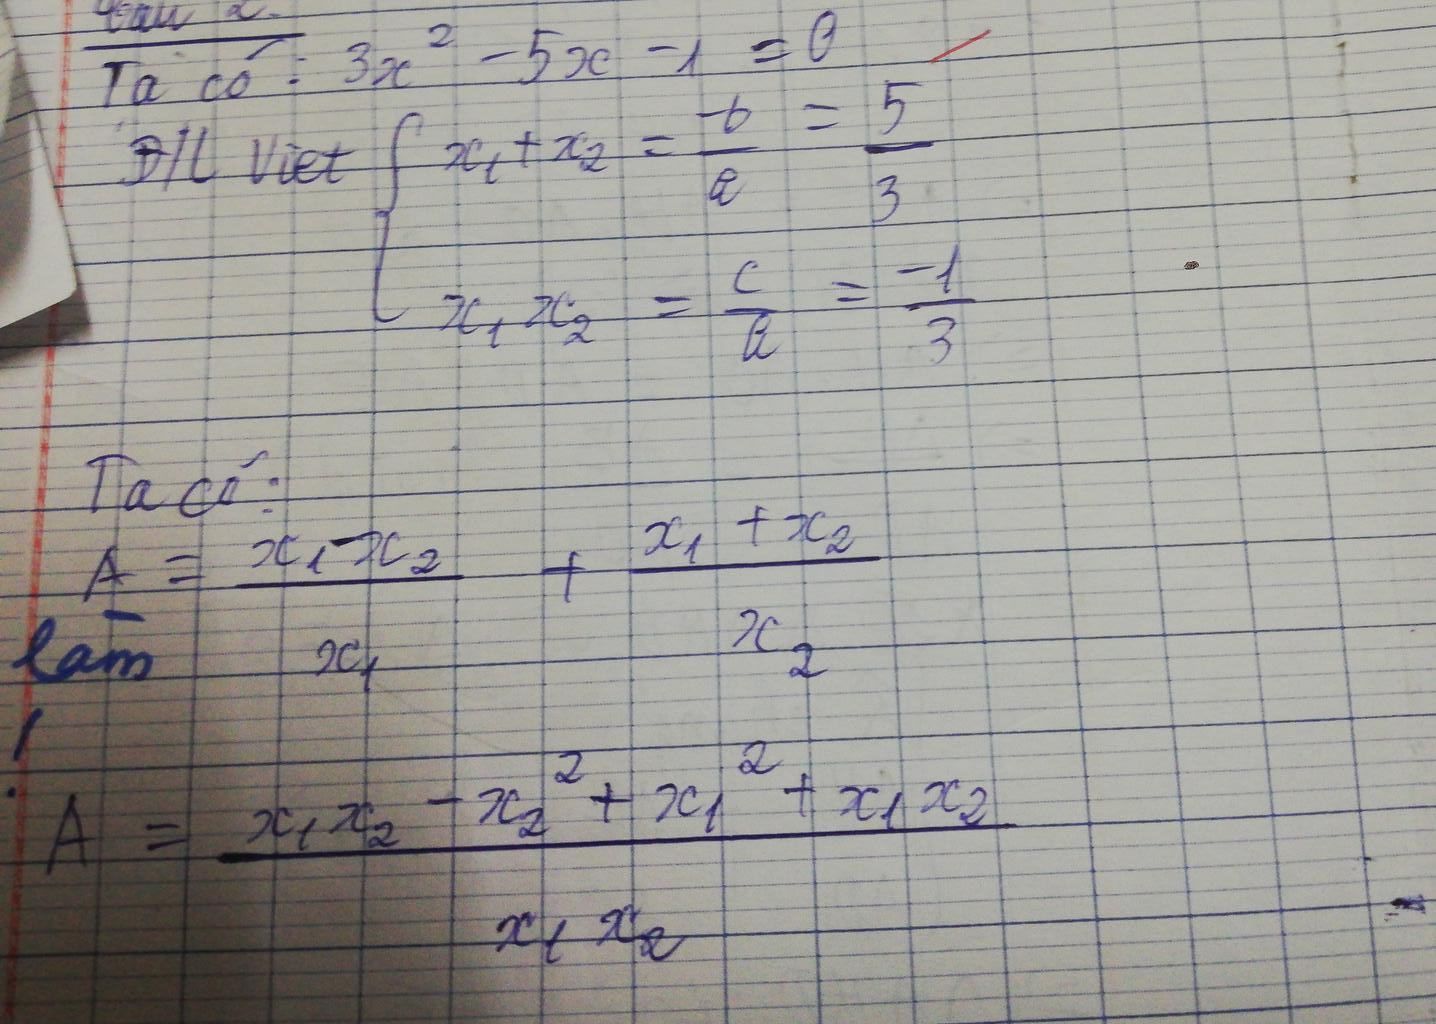 Câu 2.
Ta có: 3x² - 5x - 1 = 0
Đ/L Viet { x₁ + x₂ = -b/a = 5/3
x₁ x₂ = c/a = -1/3
Ta có:
A = (x₁ - x₂)/x₁ + (x₁ + x₂)/x₂
A = (x₁x₂ - x₂² + x₁² + x₁x₂)/(x₁x₂)